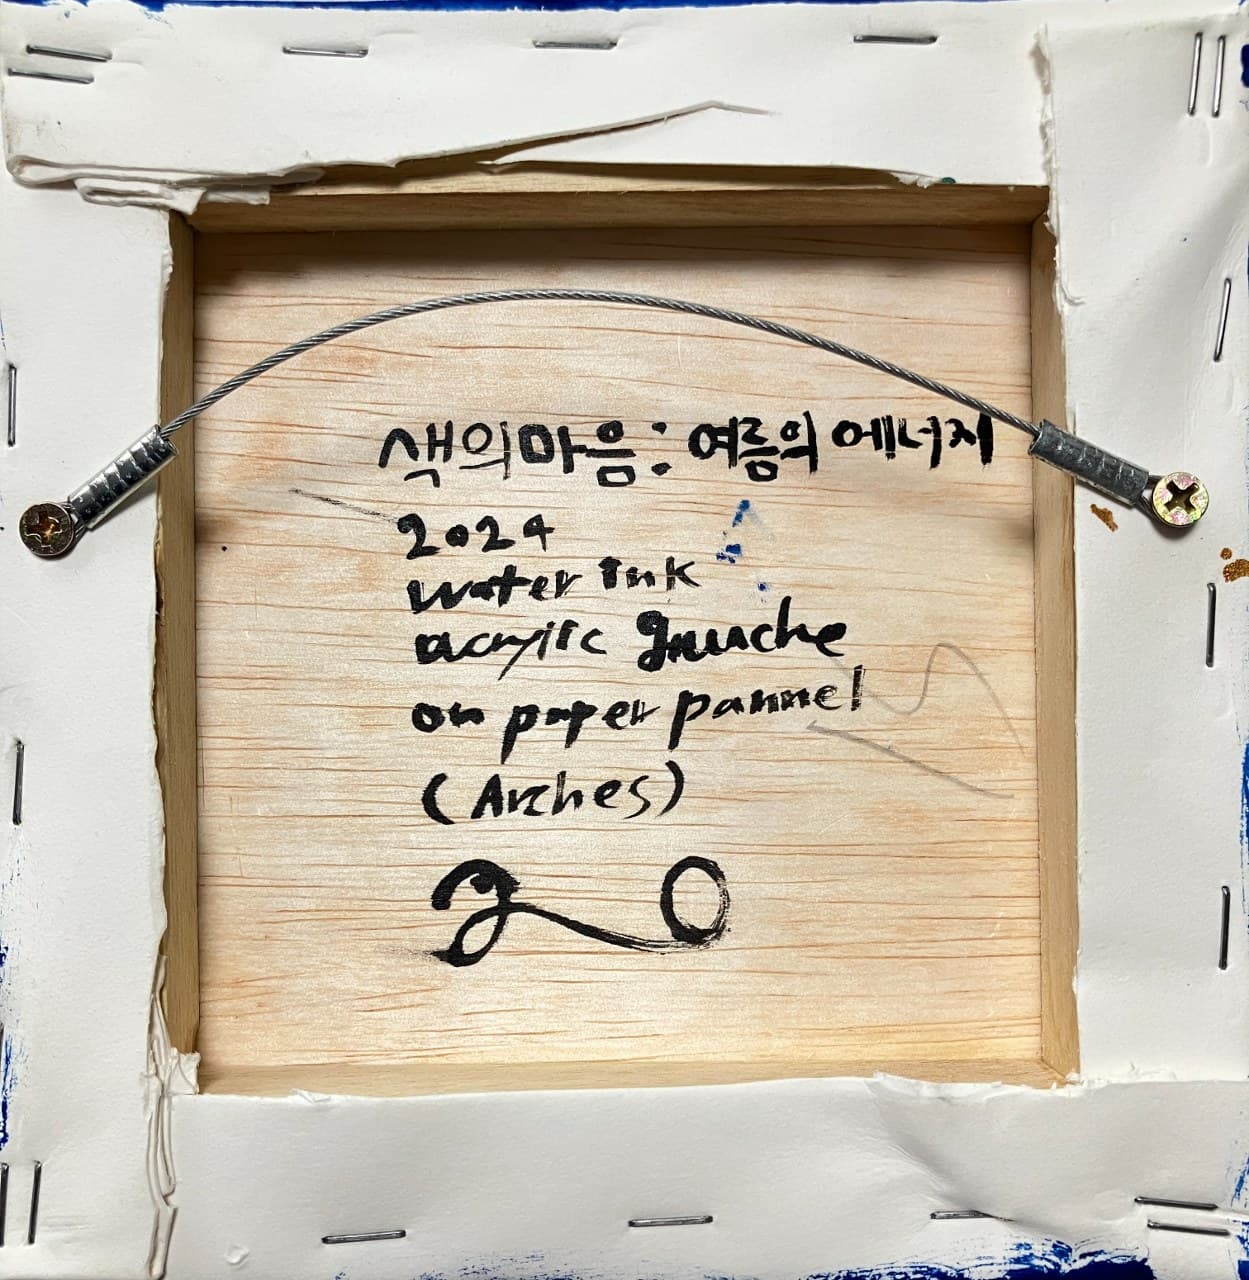 색의마음: 여름의 에너지
2024
water ink
acrylic guache
on paper pannel
(Arches)